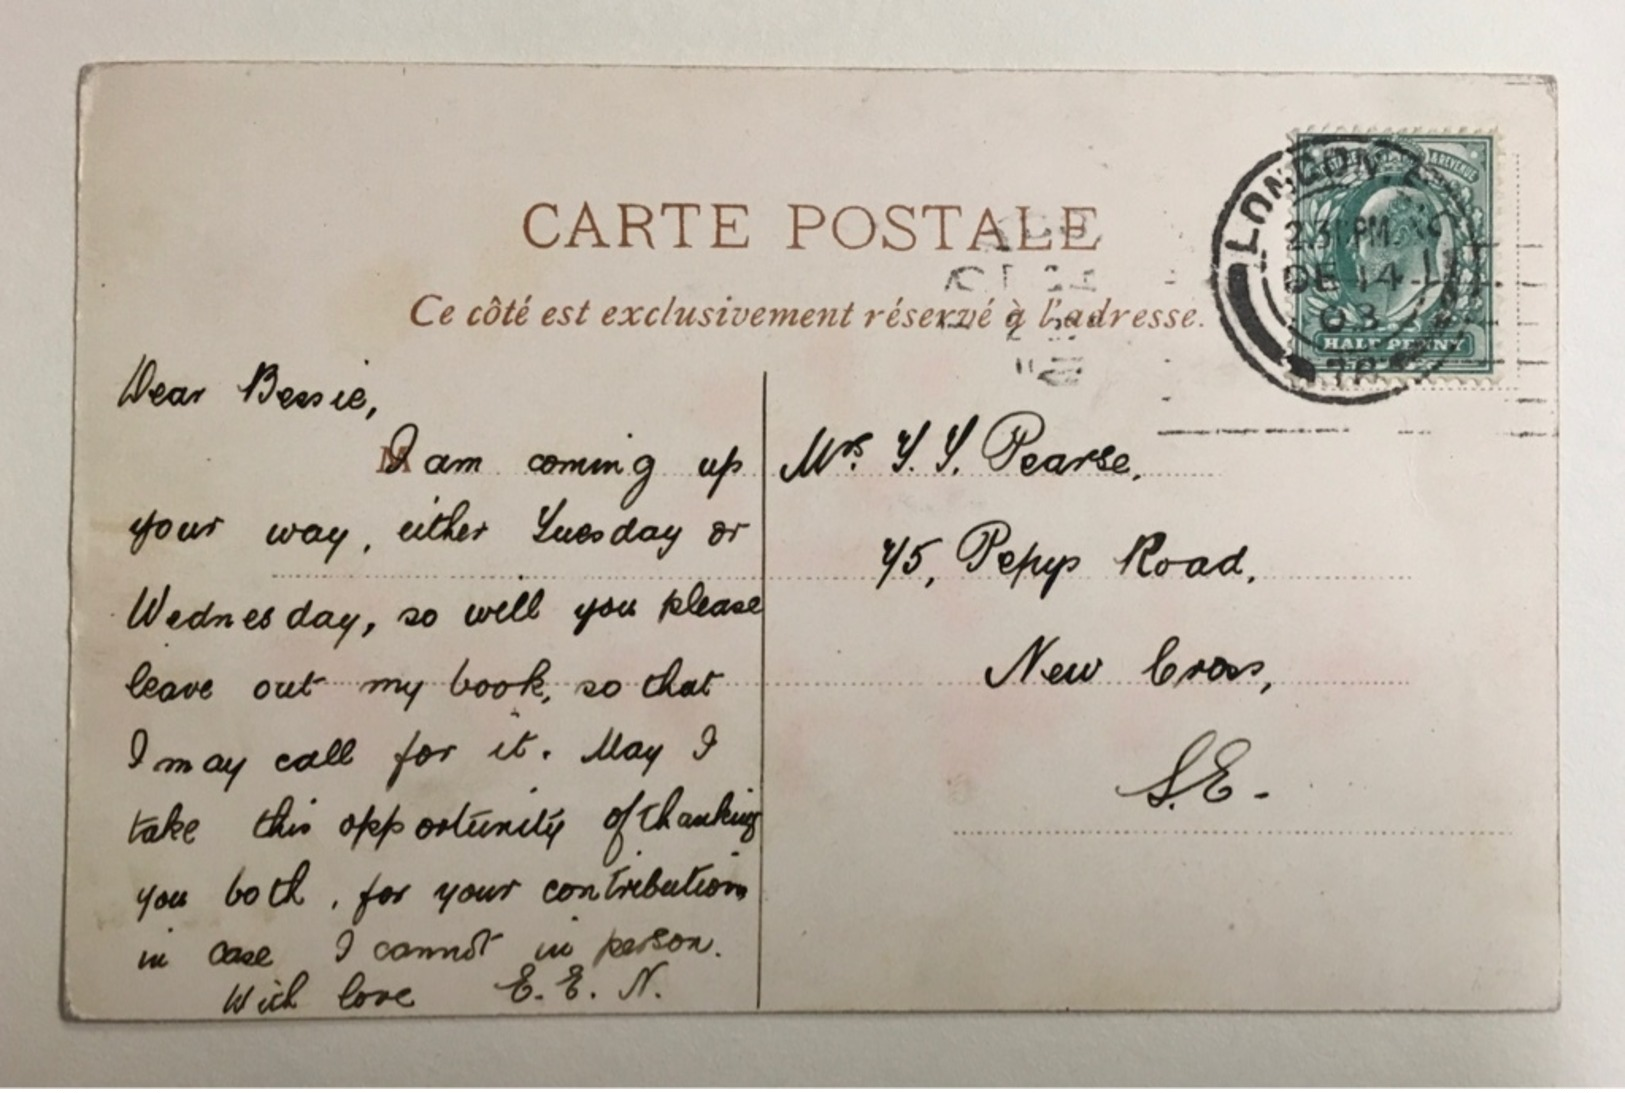 CARTE POSTALE
Ce côté est exclusivement réservé à l'adresse.
LONDON
PM
DE 14
03
HALF PENNY
Dear Bessie,
I am coming up
your way, either Tuesday or
Wednesday, so well you please
leave out my book, so that
I may call for it. May I
take this opportunity of thanking
you both, for your contributions
in case I cannot in person.
With love E. E. N.
Mrs. Pearse,
Pepys Road,
New Cross,
S.E.